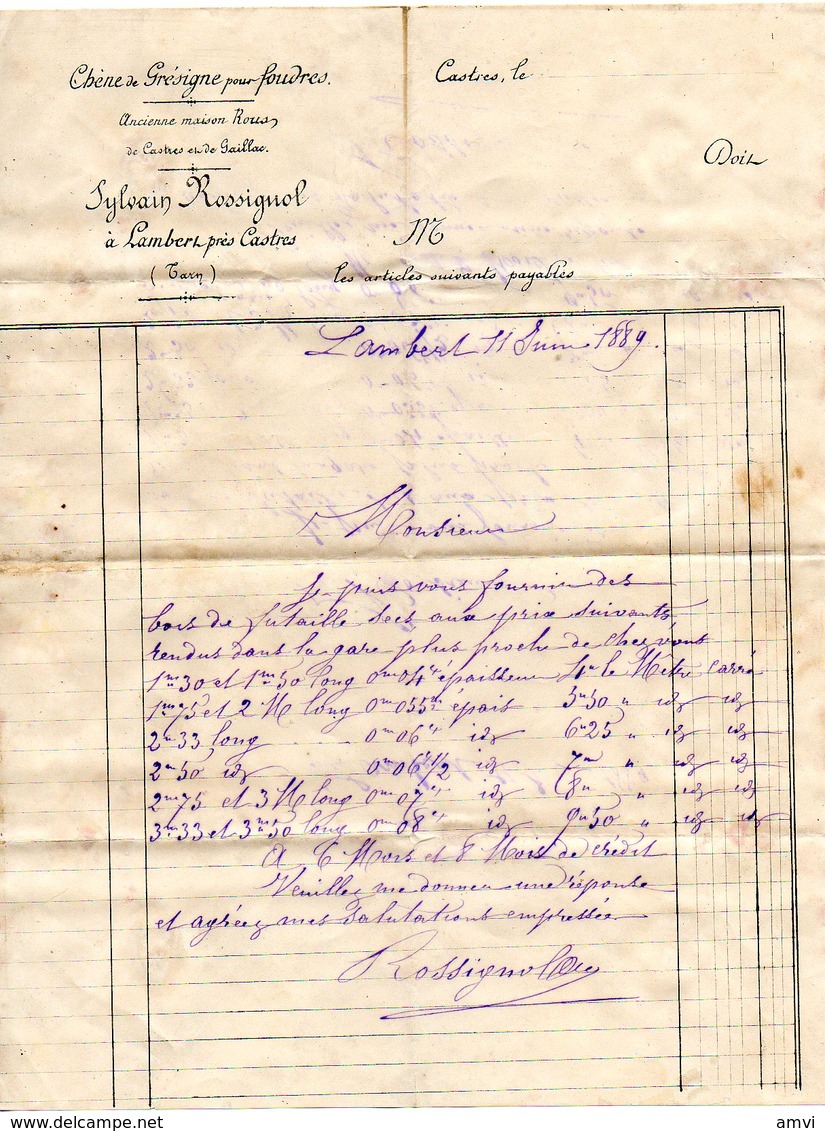 Chêne de Grésigne pour foudres.
Castres, le
Ancienne maison Rous,
de Castres et de Gaillac.
Doit
Sylvain Rossignol
à Lambert près Castres
M
(Tarn)
les articles suivants payables
Lambert 11 Juin 1889.
Monsieur
Je puis vous fournir des
bois de futaille secs aux prix suivants
rendus dans la gare plus proche de chez vous
1m30 et 1m50 long 0m04 épaisseur 4" le Mètre carré
1m75 et 2 M long 0m055 épais 5"50 " id id
2m33 long 0m06 id 6"25 " id id
2m50 id 0m06 1/2 id 7" " id id
2m75 et 3 M long 0m07 id 8" " id id
3m33 et 3m50 long 0m08 id 9"50 " id id
A 6 Mois et 8 Mois de crédit
Veuillez me donner une réponse
et agréez mes salutations empressée
Rossignol
amvi